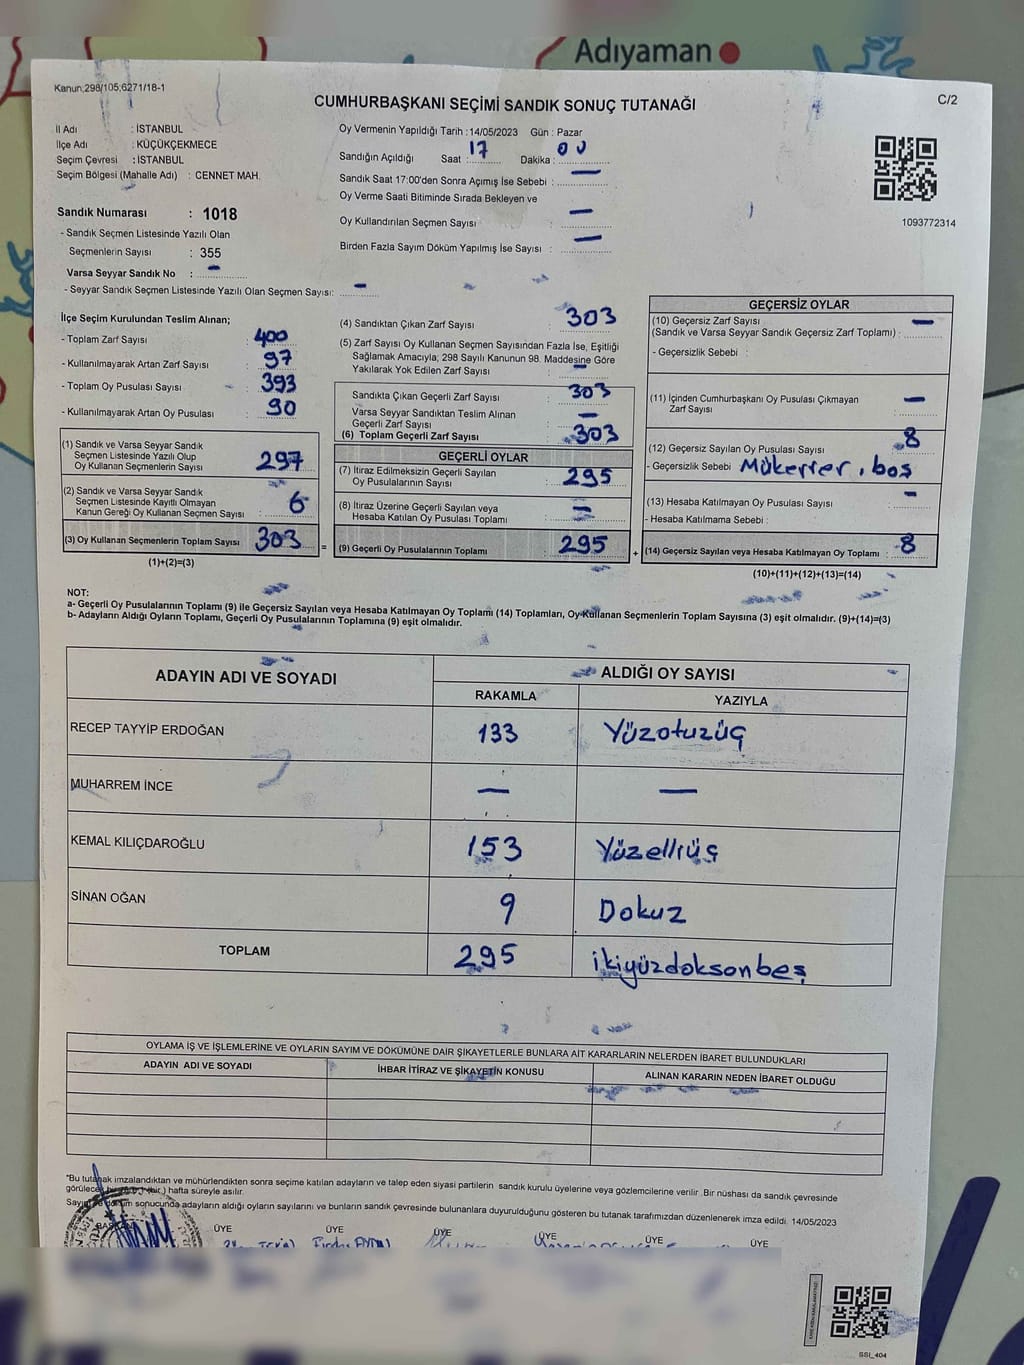 Adıyaman
Kanun;298/105;6271/18-1
C/2
CUMHURBAŞKANI SEÇİMİ SANDIK SONUÇ TUTANAĞI
İl Adı : İSTANBUL
İlçe Adı : KÜÇÜKÇEKMECE
Seçim Çevresi : İSTANBUL
Seçim Bölgesi (Mahalle Adı) : CENNET MAH.
Sandık Numarası : 1018
- Sandık Seçmen Listesinde Yazılı Olan
Seçmenlerin Sayısı : 355
Varsa Seyyar Sandık No : -
- Seyyar Sandık Seçmen Listesinde Yazılı Olan Seçmen Sayısı: -
Oy Vermenin Yapıldığı Tarih : 14/05/2023 Gün : Pazar
Sandığın Açıldığı Saat : 17 Dakika : 00
Sandık Saat 17:00'den Sonra Açımış İse Sebebi : -
Oy Verme Saati Bitiminde Sırada Bekleyen ve
Oy Kullandırılan Seçmen Sayısı : -
Birden Fazla Sayım Döküm Yapılmış İse Sayısı : -
1093772314
İlçe Seçim Kurulundan Teslim Alınan;
- Toplam Zarf Sayısı : 400
- Kullanılmayarak Artan Zarf Sayısı : 97
- Toplam Oy Pusulası Sayısı : 393
- Kullanılmayarak Artan Oy Pusulası : 90
(1) Sandık ve Varsa Seyyar Sandık
Seçmen Listesinde Yazılı Olup
Oy Kullanan Seçmenlerin Sayısı : 297
(2) Sandık ve Varsa Seyyar Sandık
Seçmen Listesinde Kayıtlı Olmayan
Kanun Gereği Oy Kullanan Seçmen Sayısı : 6
(3) Oy Kullanan Seçmenlerin Toplam Sayısı : 303
(1)+(2)=(3)
(4) Sandıktan Çıkan Zarf Sayısı : 303
(5) Zarf Sayısı Oy Kullanan Seçmen Sayısından Fazla İse, Eşitliği
Sağlamak Amacıyla, 298 Sayılı Kanunun 98. Maddesine Göre
Yakılarak Yok Edilen Zarf Sayısı : -
Sandıkta Çıkan Geçerli Zarf Sayısı : 303
Varsa Seyyar Sandıktan Teslim Alınan
Geçerli Zarf Sayısı : -
(6) Toplam Geçerli Zarf Sayısı : 303
GEÇERLİ OYLAR
(7) İtiraz Edilmeksizin Geçerli Sayılan
Oy Pusulalarının Sayısı : 295
(8) İtiraz Üzerine Geçerli Sayılan veya
Hesaba Katılan Oy Pusulası Toplamı : -
= (9) Geçerli Oy Pusulalarının Toplamı : 295
GEÇERSİZ OYLAR
(10) Geçersiz Zarf Sayısı
(Sandık ve Varsa Seyyar Sandık Geçersiz Zarf Toplamı) : -
- Geçersizlik Sebebi :
(11) İçinden Cumhurbaşkanı Oy Pusulası Çıkmayan
Zarf Sayısı : -
(12) Geçersiz Sayılan Oy Pusulası Sayısı : 8
- Geçersizlik Sebebi : Mükerrer, boş
(13) Hesaba Katılmayan Oy Pusulası Sayısı : -
- Hesaba Katılmama Sebebi :
+ (14) Geçersiz Sayılan veya Hesaba Katılmayan Oy Toplamı : 8
(10)+(11)+(12)+(13)=(14)
NOT:
a- Geçerli Oy Pusulalarının Toplamı (9) ile Geçersiz Sayılan veya Hesaba Katılmayan Oy Toplamı (14) Toplamları, Oy Kullanan Seçmenlerin Toplam Sayısına (3) eşit olmalıdır. (9)+(14)=(3)
b- Adayların Aldığı Oyların Toplamı, Geçerli Oy Pusulalarının Toplamına (9) eşit olmalıdır.
ADAYIN ADI VE SOYADI
ALDIĞI OY SAYISI
RAKAMLA YAZIYLA
RECEP TAYYİP ERDOĞAN 133 Yüzotuzüç
MUHARREM İNCE - -
KEMAL KILIÇDAROĞLU 153 Yüzelliüç
SİNAN OĞAN 9 Dokuz
TOPLAM 295 ikiyüzdoksonbeş
OYLAMA İŞ VE İŞLEMLERİNE VE OYLARIN SAYIM VE DÖKÜMÜNE DAİR ŞİKAYETLERLE BUNLARA AİT KARARLARIN NELERDEN İBARET BULUNDUKLARI
ADAYIN ADI VE SOYADI
İHBAR İTİRAZ VE ŞİKAYETİN KONUSU
ALINAN KARARIN NEDEN İBARET OLDUĞU
"Bu tutanak imzalandıktan ve mühürlendikten sonra seçime katılan adayların ve talep eden siyasi partilerin sandık kurulu üyelerine veya gözlemcilerine verilir. Bir nüshası da sandık çevresinde
(bir) hafta süreyle asılır.
sonucunda adayların aldığı oyların sayılarını ve bunların sandık çevresinde bulunanlara duyurulduğunu gösteren bu tutanak tarafımızdan düzenlenerek imza edildi. 14/05/2023
BAŞKAN ÜYE ÜYE ÜYE ÜYE ÜYE ÜYE
SSI_404